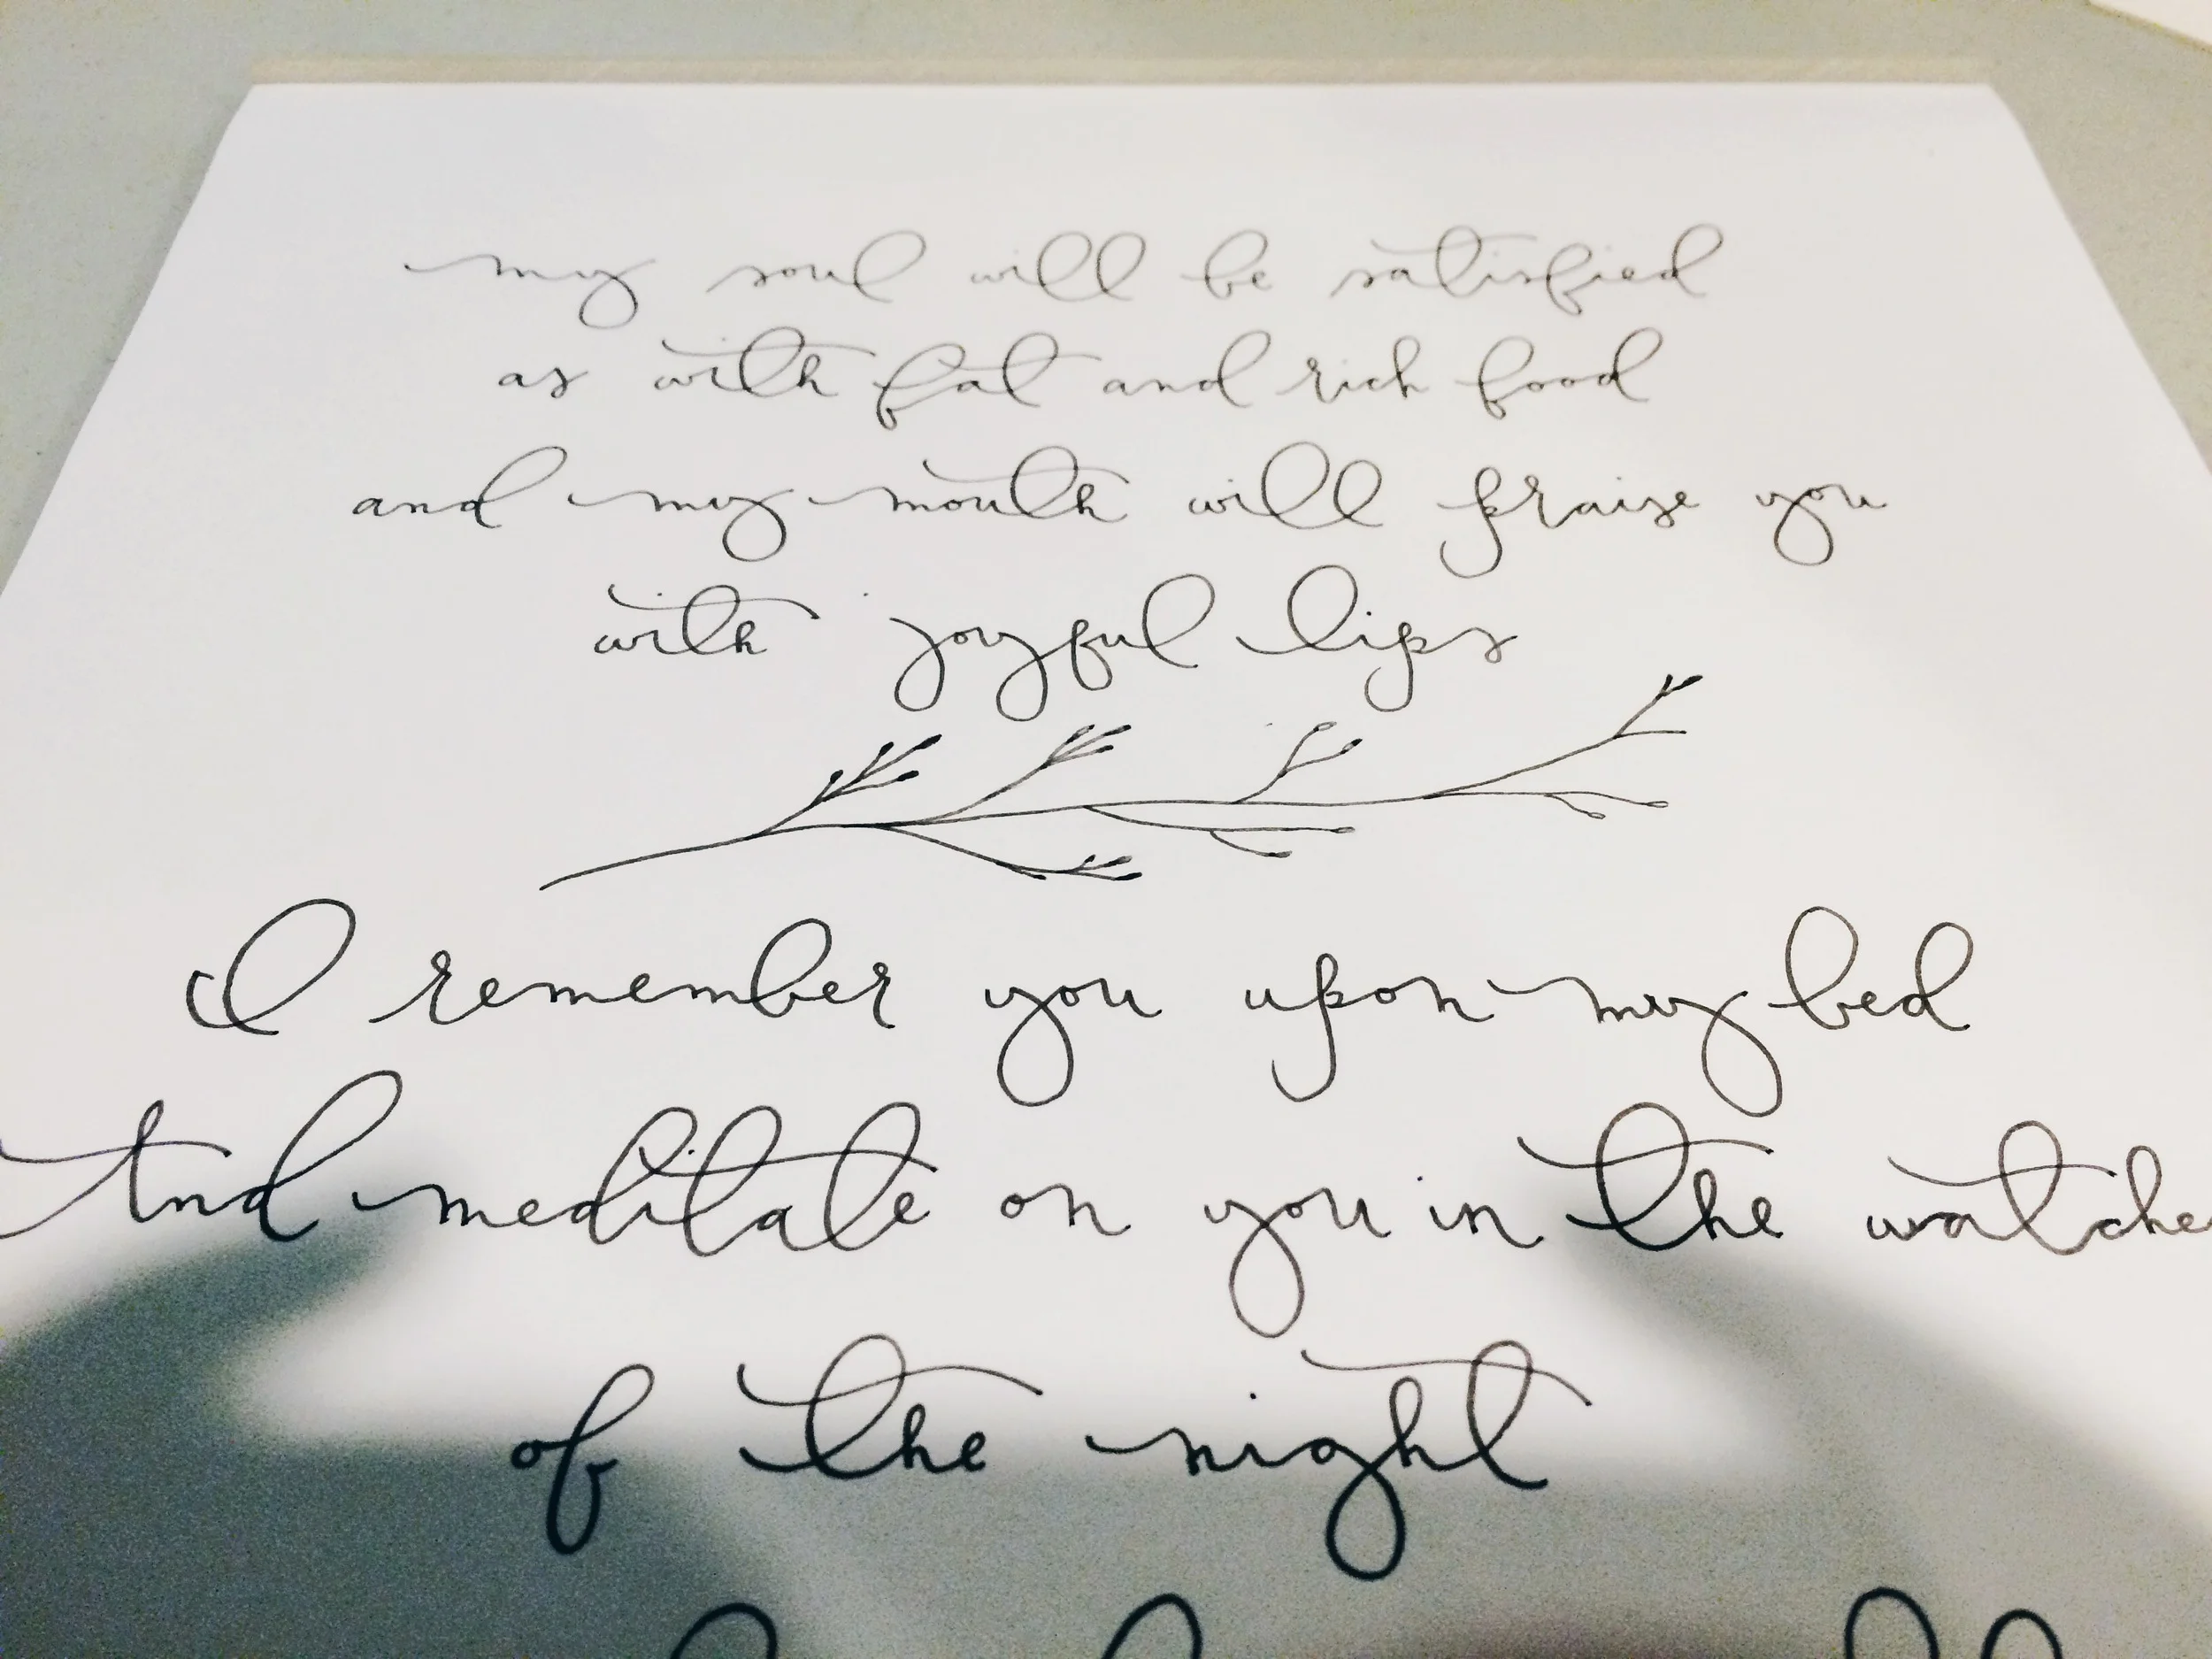 my soul will be satisfied
as with fat and rich food
and my mouth will praise you
with joyful lips
I remember you upon my bed
And meditate on you in the watche
of the night